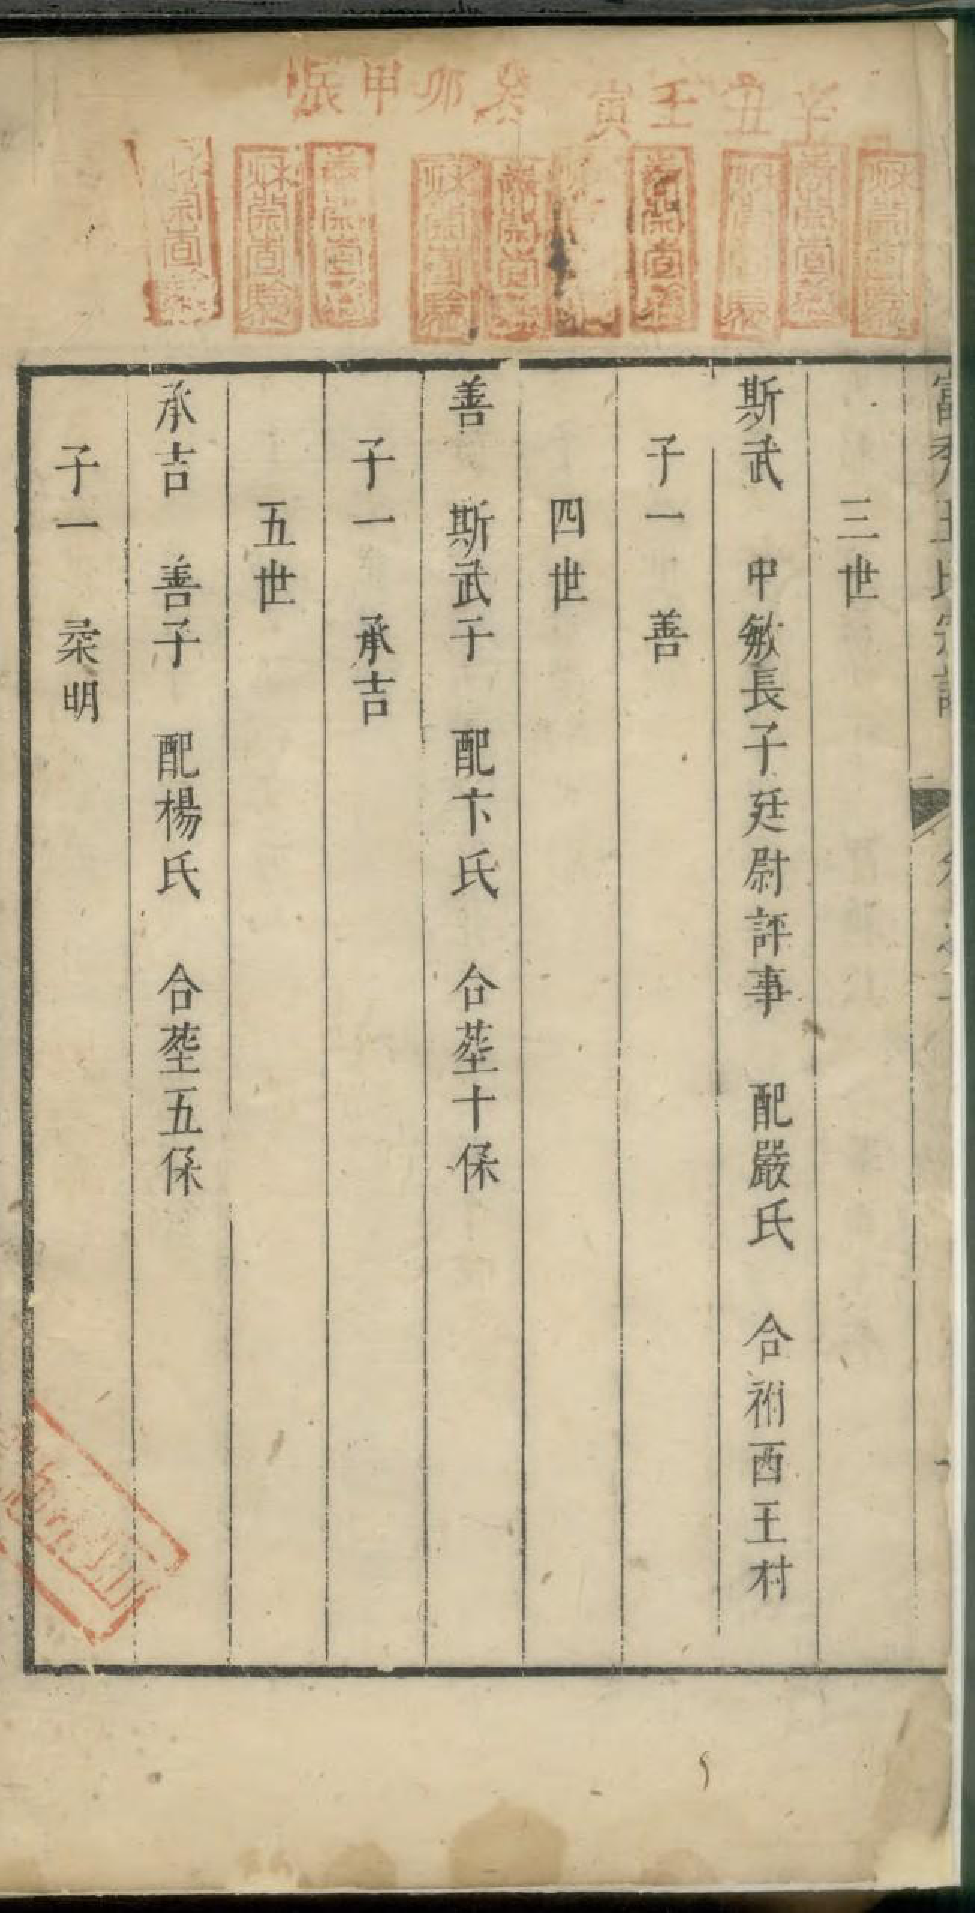 辛丑 壬寅 癸卯 甲辰
三世
斯武 中敏長子廷尉評事 配嚴氏 合祔西王村
子一 善
四世
善 斯武子 配卞氏 合塟十保
子一 承吉
五世
承吉 善子 配楊氏 合塟五保
子一 桒明